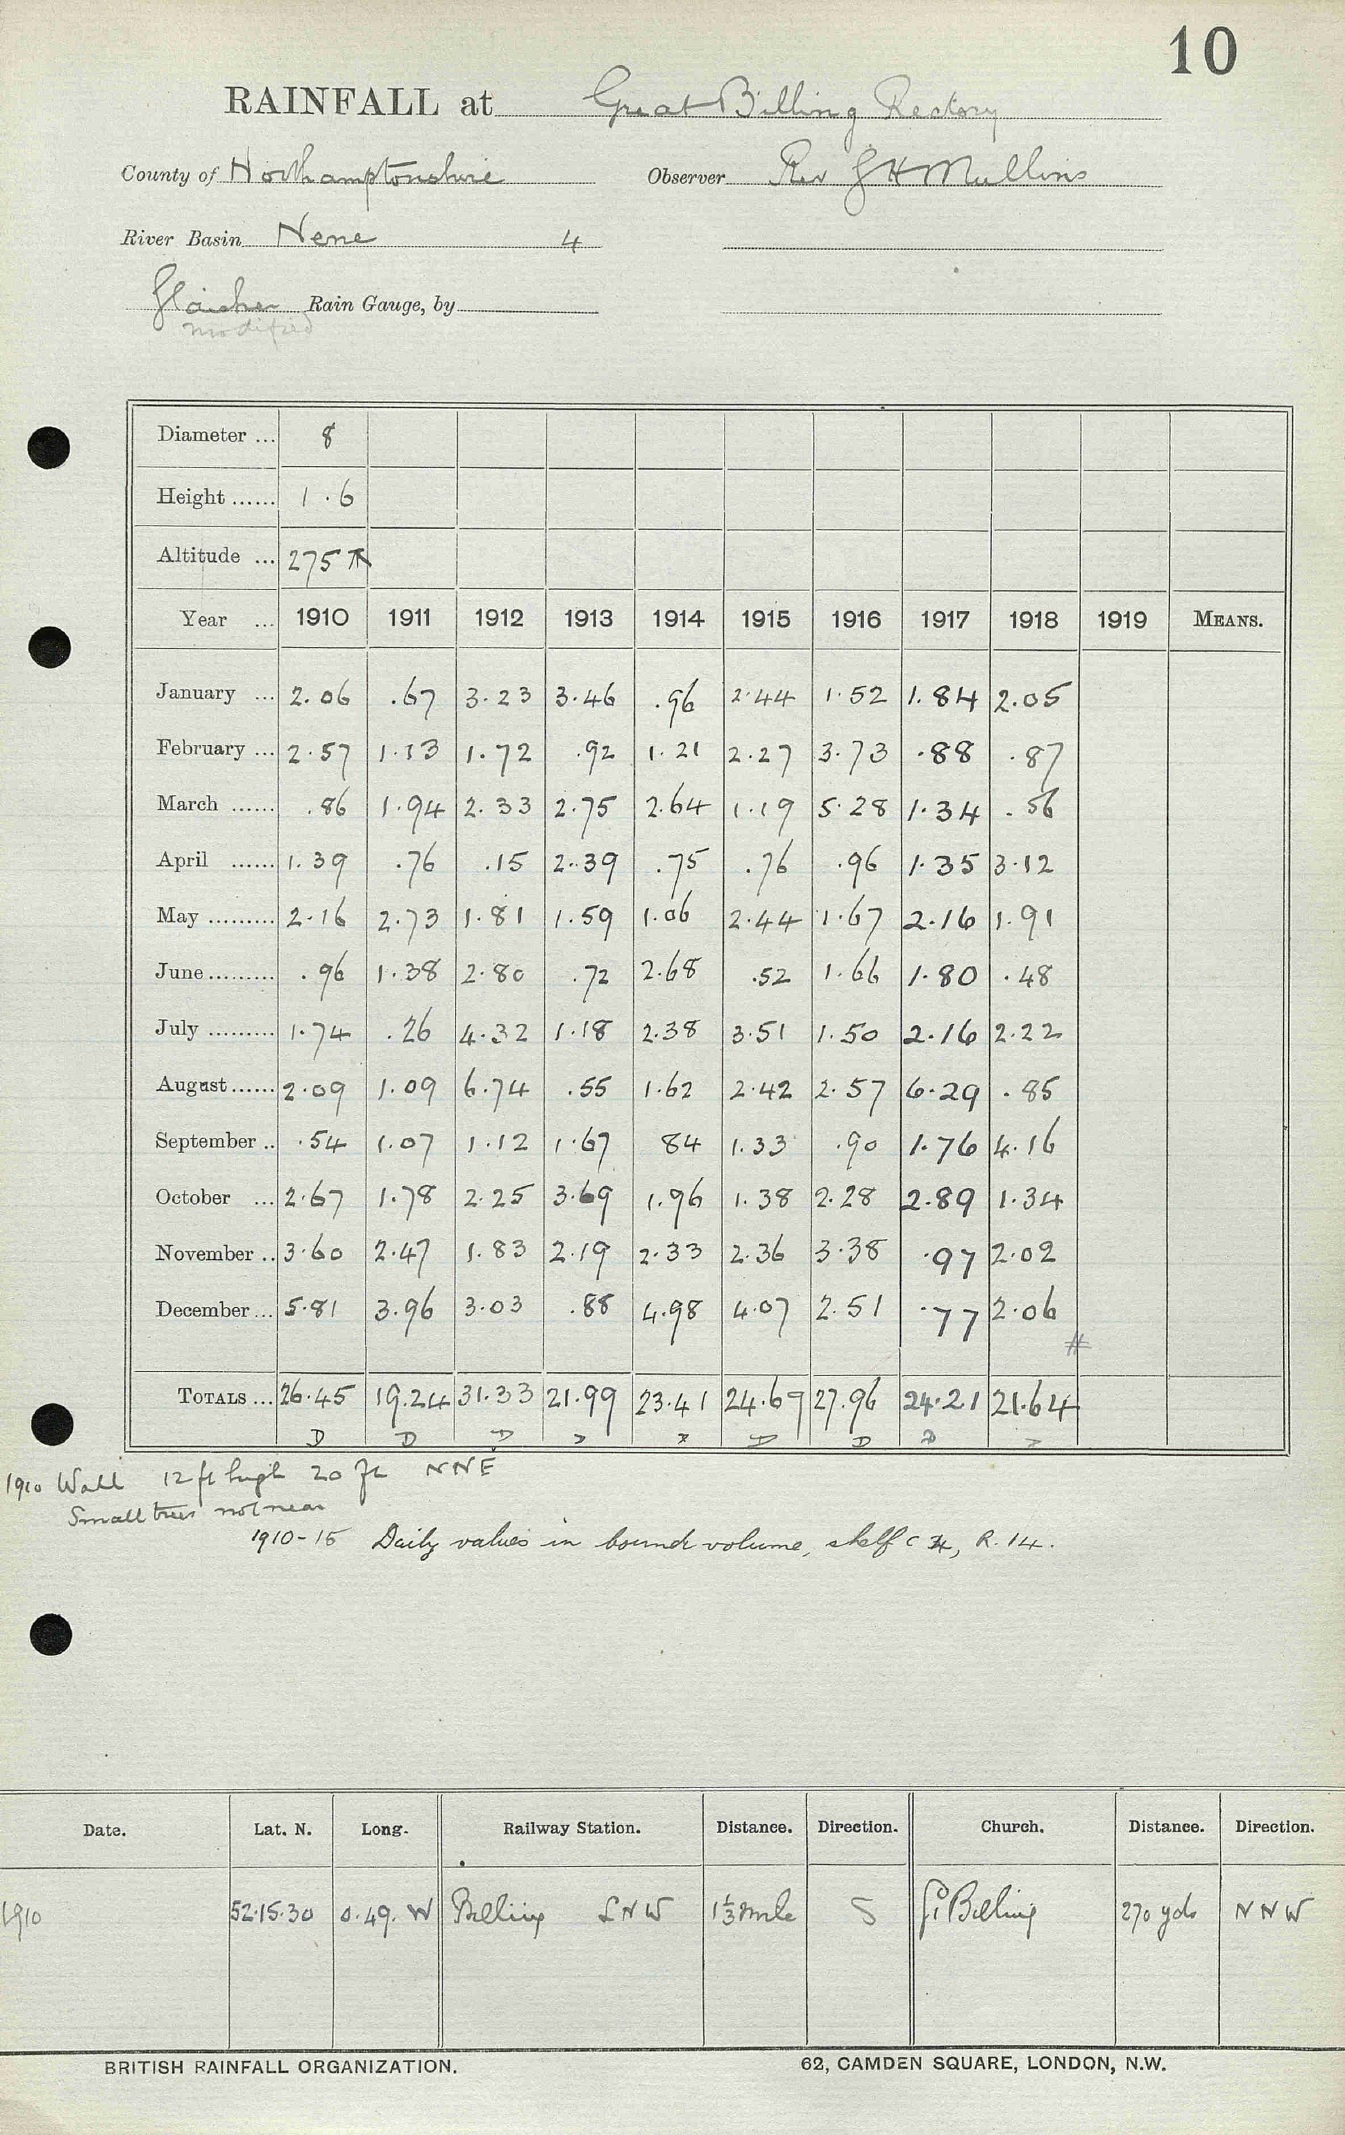 10
RAINFALL at Great Billing Rectory
County of Northamptonshire Observer Rev G H Mullins
River Basin Nene 4
Glaisher Rain Gauge, by
modified
Diameter ... 8
Height ...... 1.6
Altitude ... 275
Year ... 1910 1911 1912 1913 1914 1915 1916 1917 1918 1919 MEANS.
January ... 2.06 .67 3.23 3.46 .96 2.44 1.52 1.84 2.05
February ... 2.57 1.13 1.72 .92 1.21 2.27 3.73 .88 .87
March ...... .86 1.94 2.33 2.75 2.64 1.19 5.28 1.34 .56
April ...... 1.39 .76 .15 2.39 .75 .76 .96 1.35 3.12
May ......... 2.16 2.73 1.81 1.59 1.06 2.44 1.67 2.16 1.91
June ......... .96 1.38 2.80 .72 2.68 .52 1.66 1.80 .48
July ......... 1.74 .26 4.32 1.18 2.38 3.51 1.50 2.16 2.22
August ...... 2.09 1.09 6.74 .55 1.62 2.42 2.57 6.29 .85
September .. .54 1.07 1.12 1.67 84 1.33 .90 1.76 4.16
October ... 2.67 1.78 2.25 3.69 1.96 1.38 2.28 2.89 1.34
November .. 3.60 2.47 1.83 2.19 2.33 2.36 3.38 .97 2.02
December ... 5.81 3.96 3.03 .88 4.98 4.07 2.51 .77 2.06
#
TOTALS ... 26.45 19.24 31.33 21.99 23.41 24.69 27.96 24.21 21.64
D D D D D D
1910 Wall 12 ft high 20 ft NNE
Small trees not near
1910-15 Daily values in bound volume, shelf C 4, R. 14.
Date. Lat. N. Long. Railway Station. Distance. Direction. Church. Distance. Direction.
1910 52.15.30 0.49. W Billing LNW 1⅓ mile S Gt Billing 270 yds NNW
BRITISH RAINFALL ORGANIZATION. 62, CAMDEN SQUARE, LONDON, N.W.